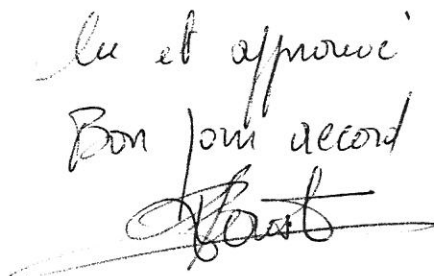 lu et approuvé
Bon pour accord